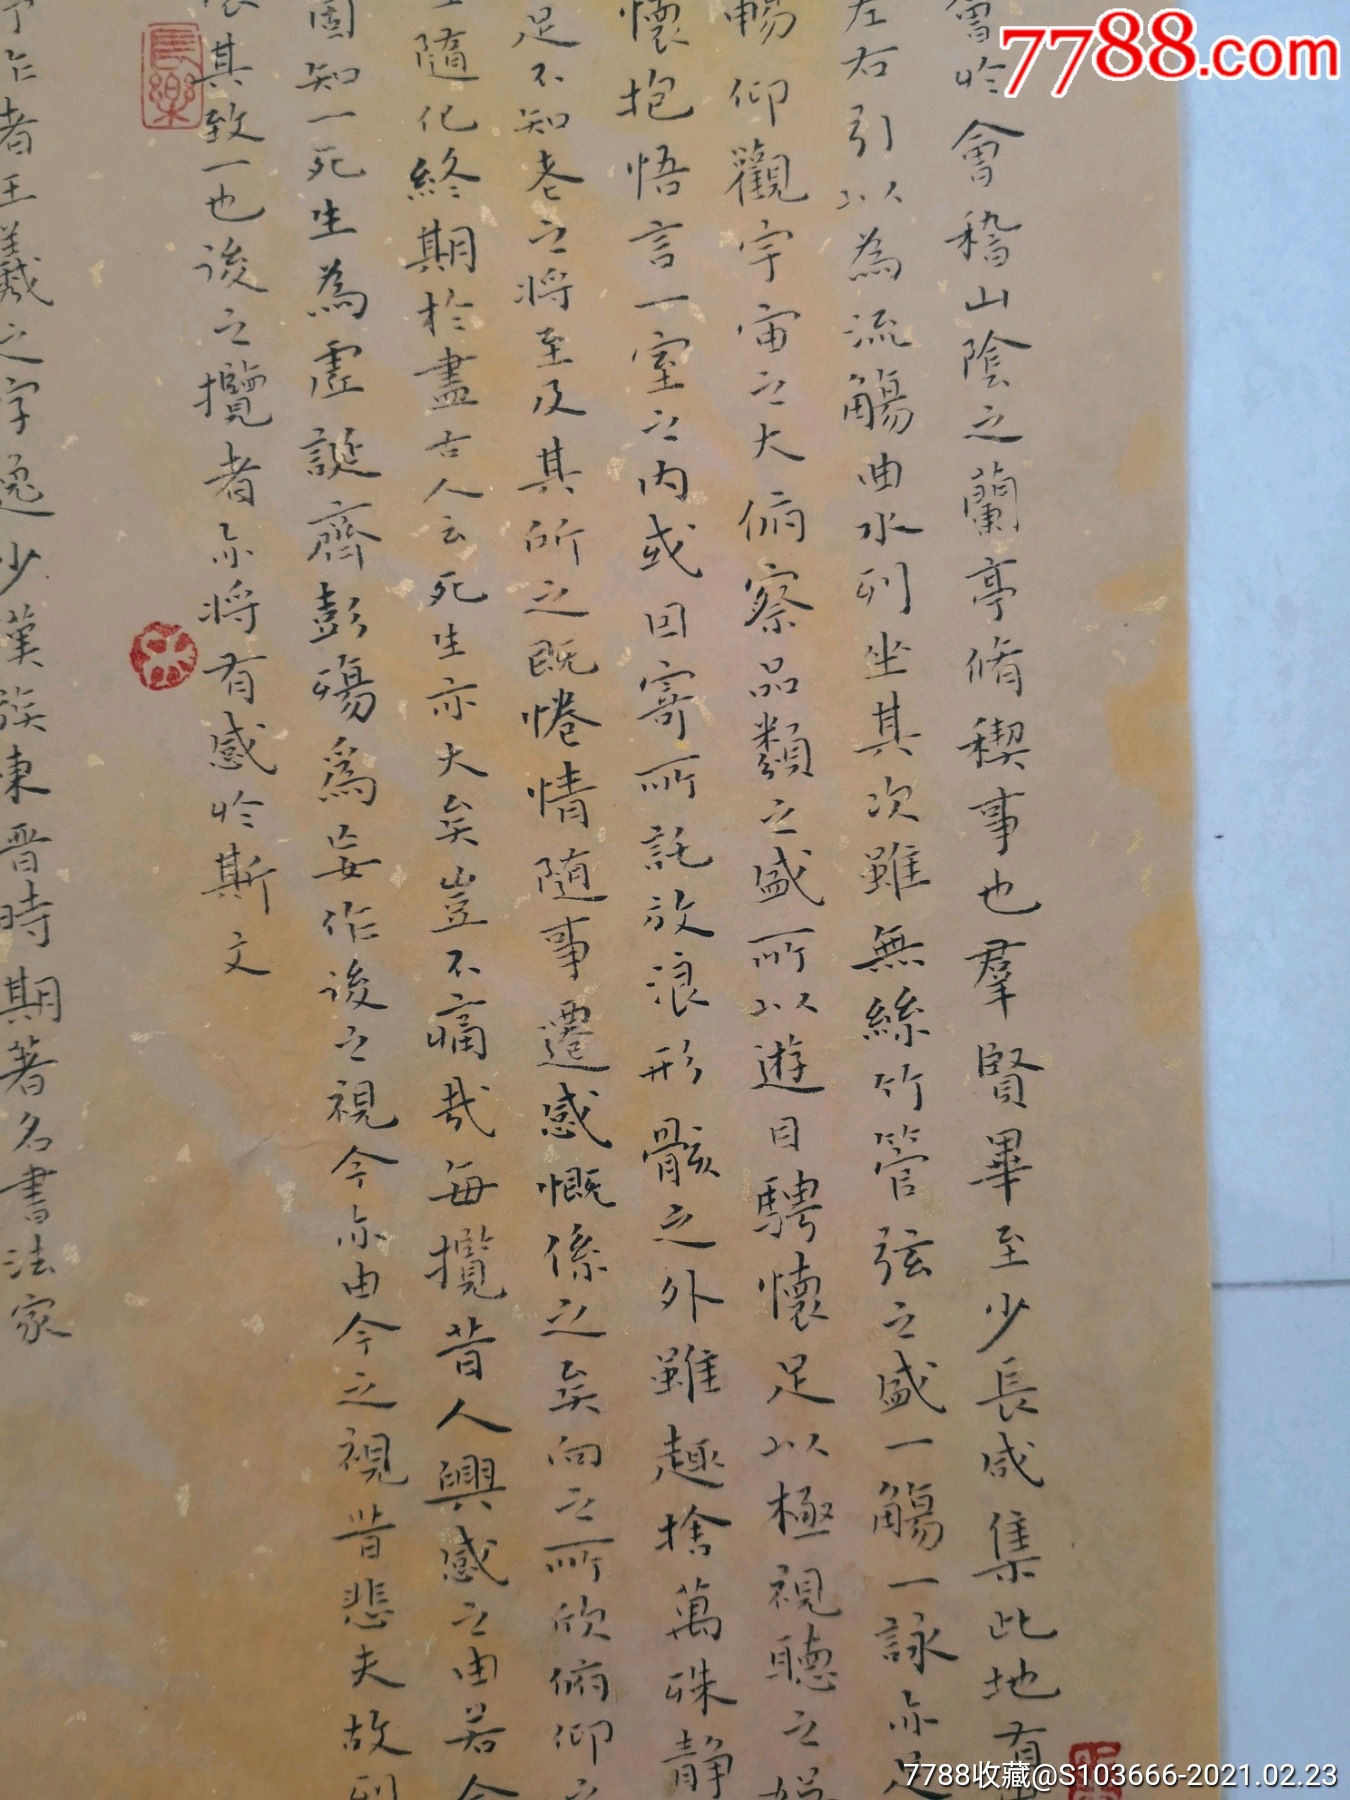 7788.com
會於會稽山陰之蘭亭脩稧事也羣賢畢至少長咸集此地有
左右引以為流觴曲水列坐其次雖無絲竹管弦之盛一觴一詠亦足
暢仰觀宇宙之大俯察品類之盛所以遊目騁懷足以極視聽之娛
懷抱悟言一室之內或回寄所託放浪形骸之外雖趣捨萬殊靜
足不知老之將至及其所之既惓情隨事遷感慨係之矣向之所欣俯仰之
隨化終期於盡古人云死生亦大矣豈不痛哉每攬昔人興感之由若合
固知一死生為虛誕齊彭殤為妄作後之視今亦由今之視昔悲夫故列
其致一也後之攬者亦將有感於斯文
作者王羲之字逸少漢族東晉時期著名書法家
長樂
7788收藏@S103666-2021.02.23